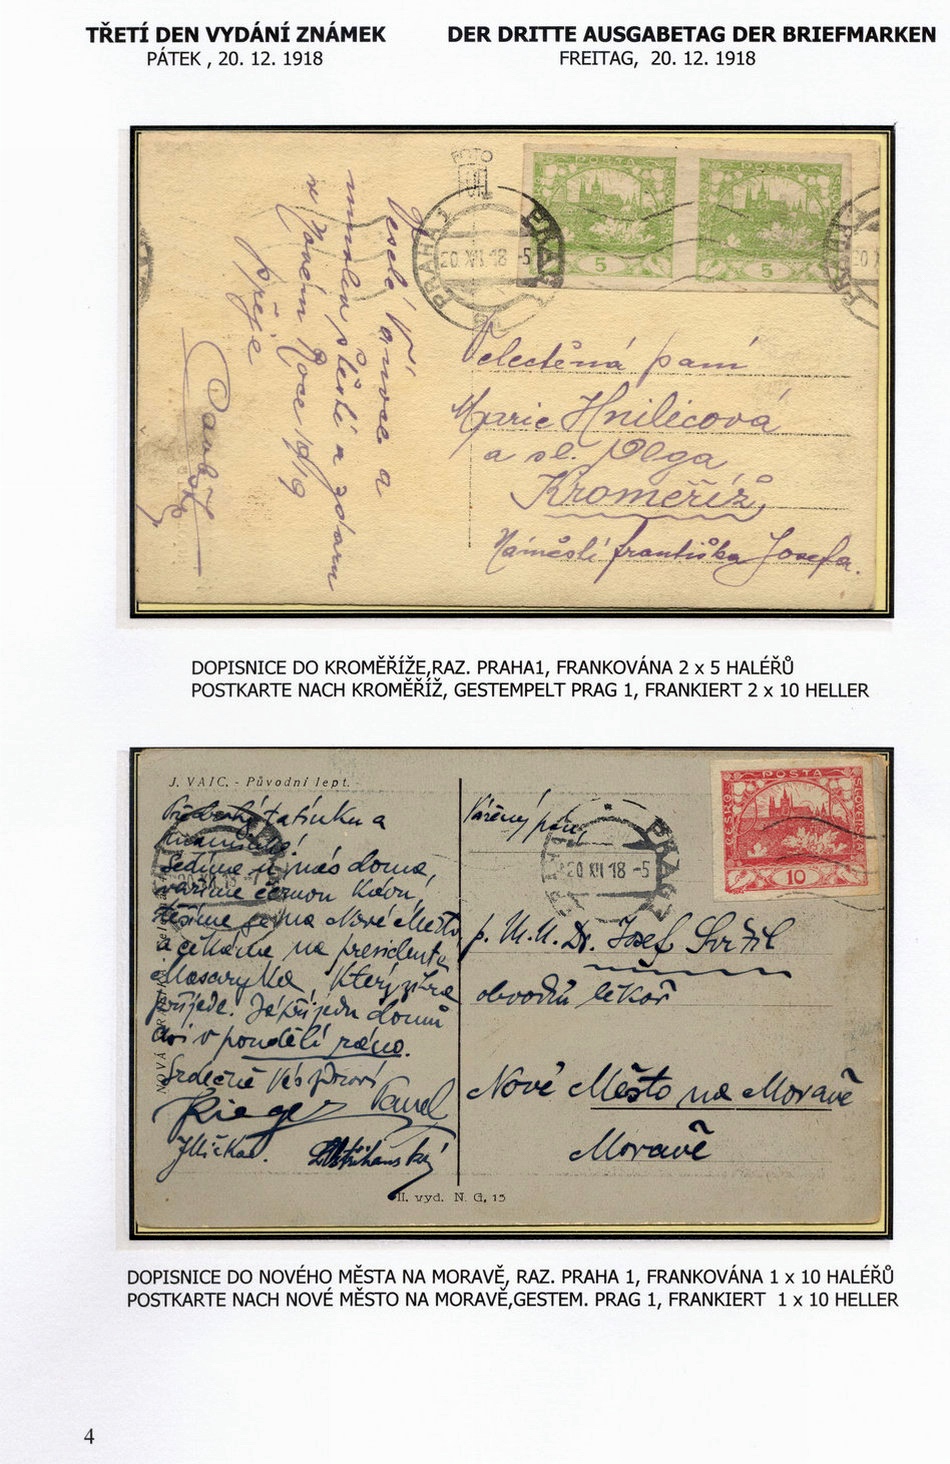 TŘETÍ DEN VYDÁNÍ ZNÁMEK
PÁTEK , 20. 12. 1918
DER DRITTE AUSGABETAG DER BRIEFMARKEN
FREITAG, 20. 12. 1918
POSTA
POSTA
5
5
PRAHA
PRAG
20 XII 18 -5
Veselé Vánoce a
mnoho štěstí a zdaru
v Novém Roce 1919
přeje
Velectěná paní
Marie Hnilicová
a sl. Olga
Kroměříž,
Náměstí františka Josefa.
DOPISNICE DO KROMĚŘÍŽE,RAZ. PRAHA1, FRANKOVÁNA 2 x 5 HALÉŘŮ
POSTKARTE NACH KROMĚŘÍŽ, GESTEMPELT PRAG 1, FRANKIERT 2 x 10 HELLER
J. VAIC. - Původní lept.
tatínku a
maminko!
Sedíme u nás doma,
vaříme černou kávu,
těšíme se na Nové Město
a čekáme na presidenta
Masaryka, který zítra
přijede. Já přijedu domů
asi v pondělí ráno.
Srdečně Vás zdraví
Rieger Pavel
II. vyd. N. G. 15
Vážený pan
20 XII 18 -5
PRAG
POSTA
ČESKO
SLOVENSKÁ
10
p. M. U. Dr. Josef
obvodní lékař
Nové Město na Moravě
Moravě
DOPISNICE DO NOVÉHO MĚSTA NA MORAVĚ, RAZ. PRAHA 1, FRANKOVÁNA 1 x 10 HALÉŘŮ
POSTKARTE NACH NOVÉ MĚSTO NA MORAVĚ,GESTEM. PRAG 1, FRANKIERT 1 x 10 HELLER
4